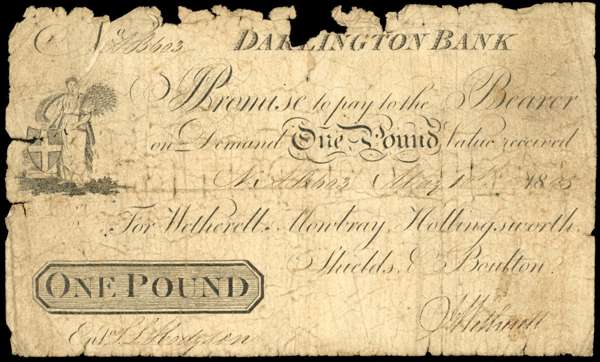 No A B 603 DARLINGTON BANK
I Promise to pay to the Bearer
on Demand One Pound Value received
No A B 603 May 1815
For Wetherell, Mowbray, Hollingsworth,
Shields, & Boulton.
ONE POUND
Entd Hodgson